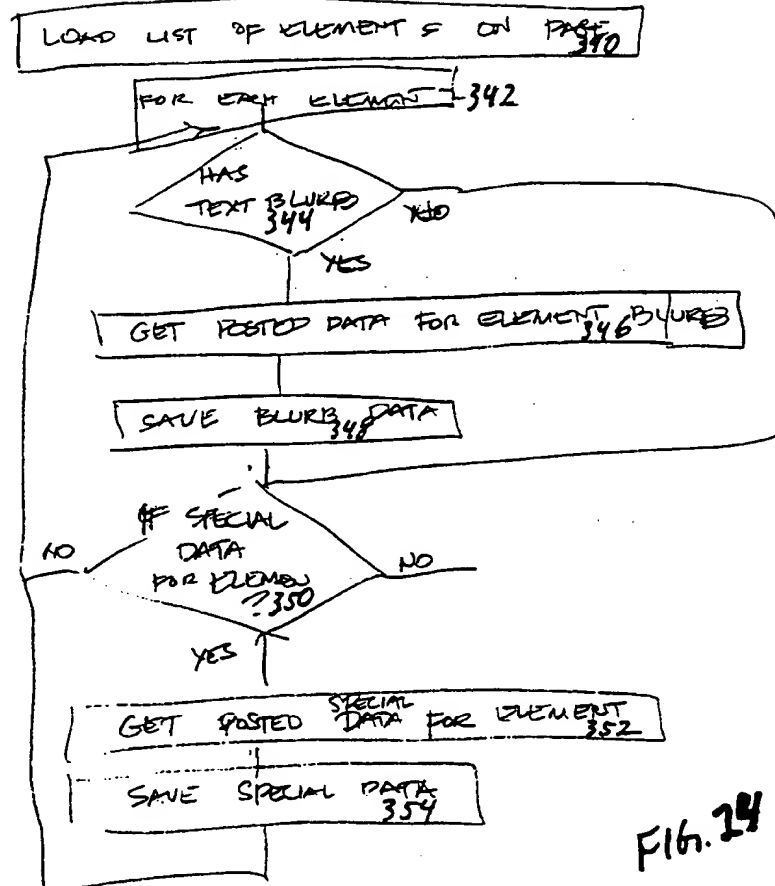 LOAD LIST OF ELEMENT S ON PAGE
340
FOR EACH ELEMENT 342
HAS
TEXT BLURB
344
NO
YES
GET POSTED DATA FOR ELEMENT BLURB
346
SAVE BLURB DATA
348
IF SPECIAL
DATA
FOR ELEMEN
? 350
NO
NO
YES
GET POSTED SPECIAL DATA FOR ELEMENT
352
SAVE SPECIAL DATA
354
FIG. 24